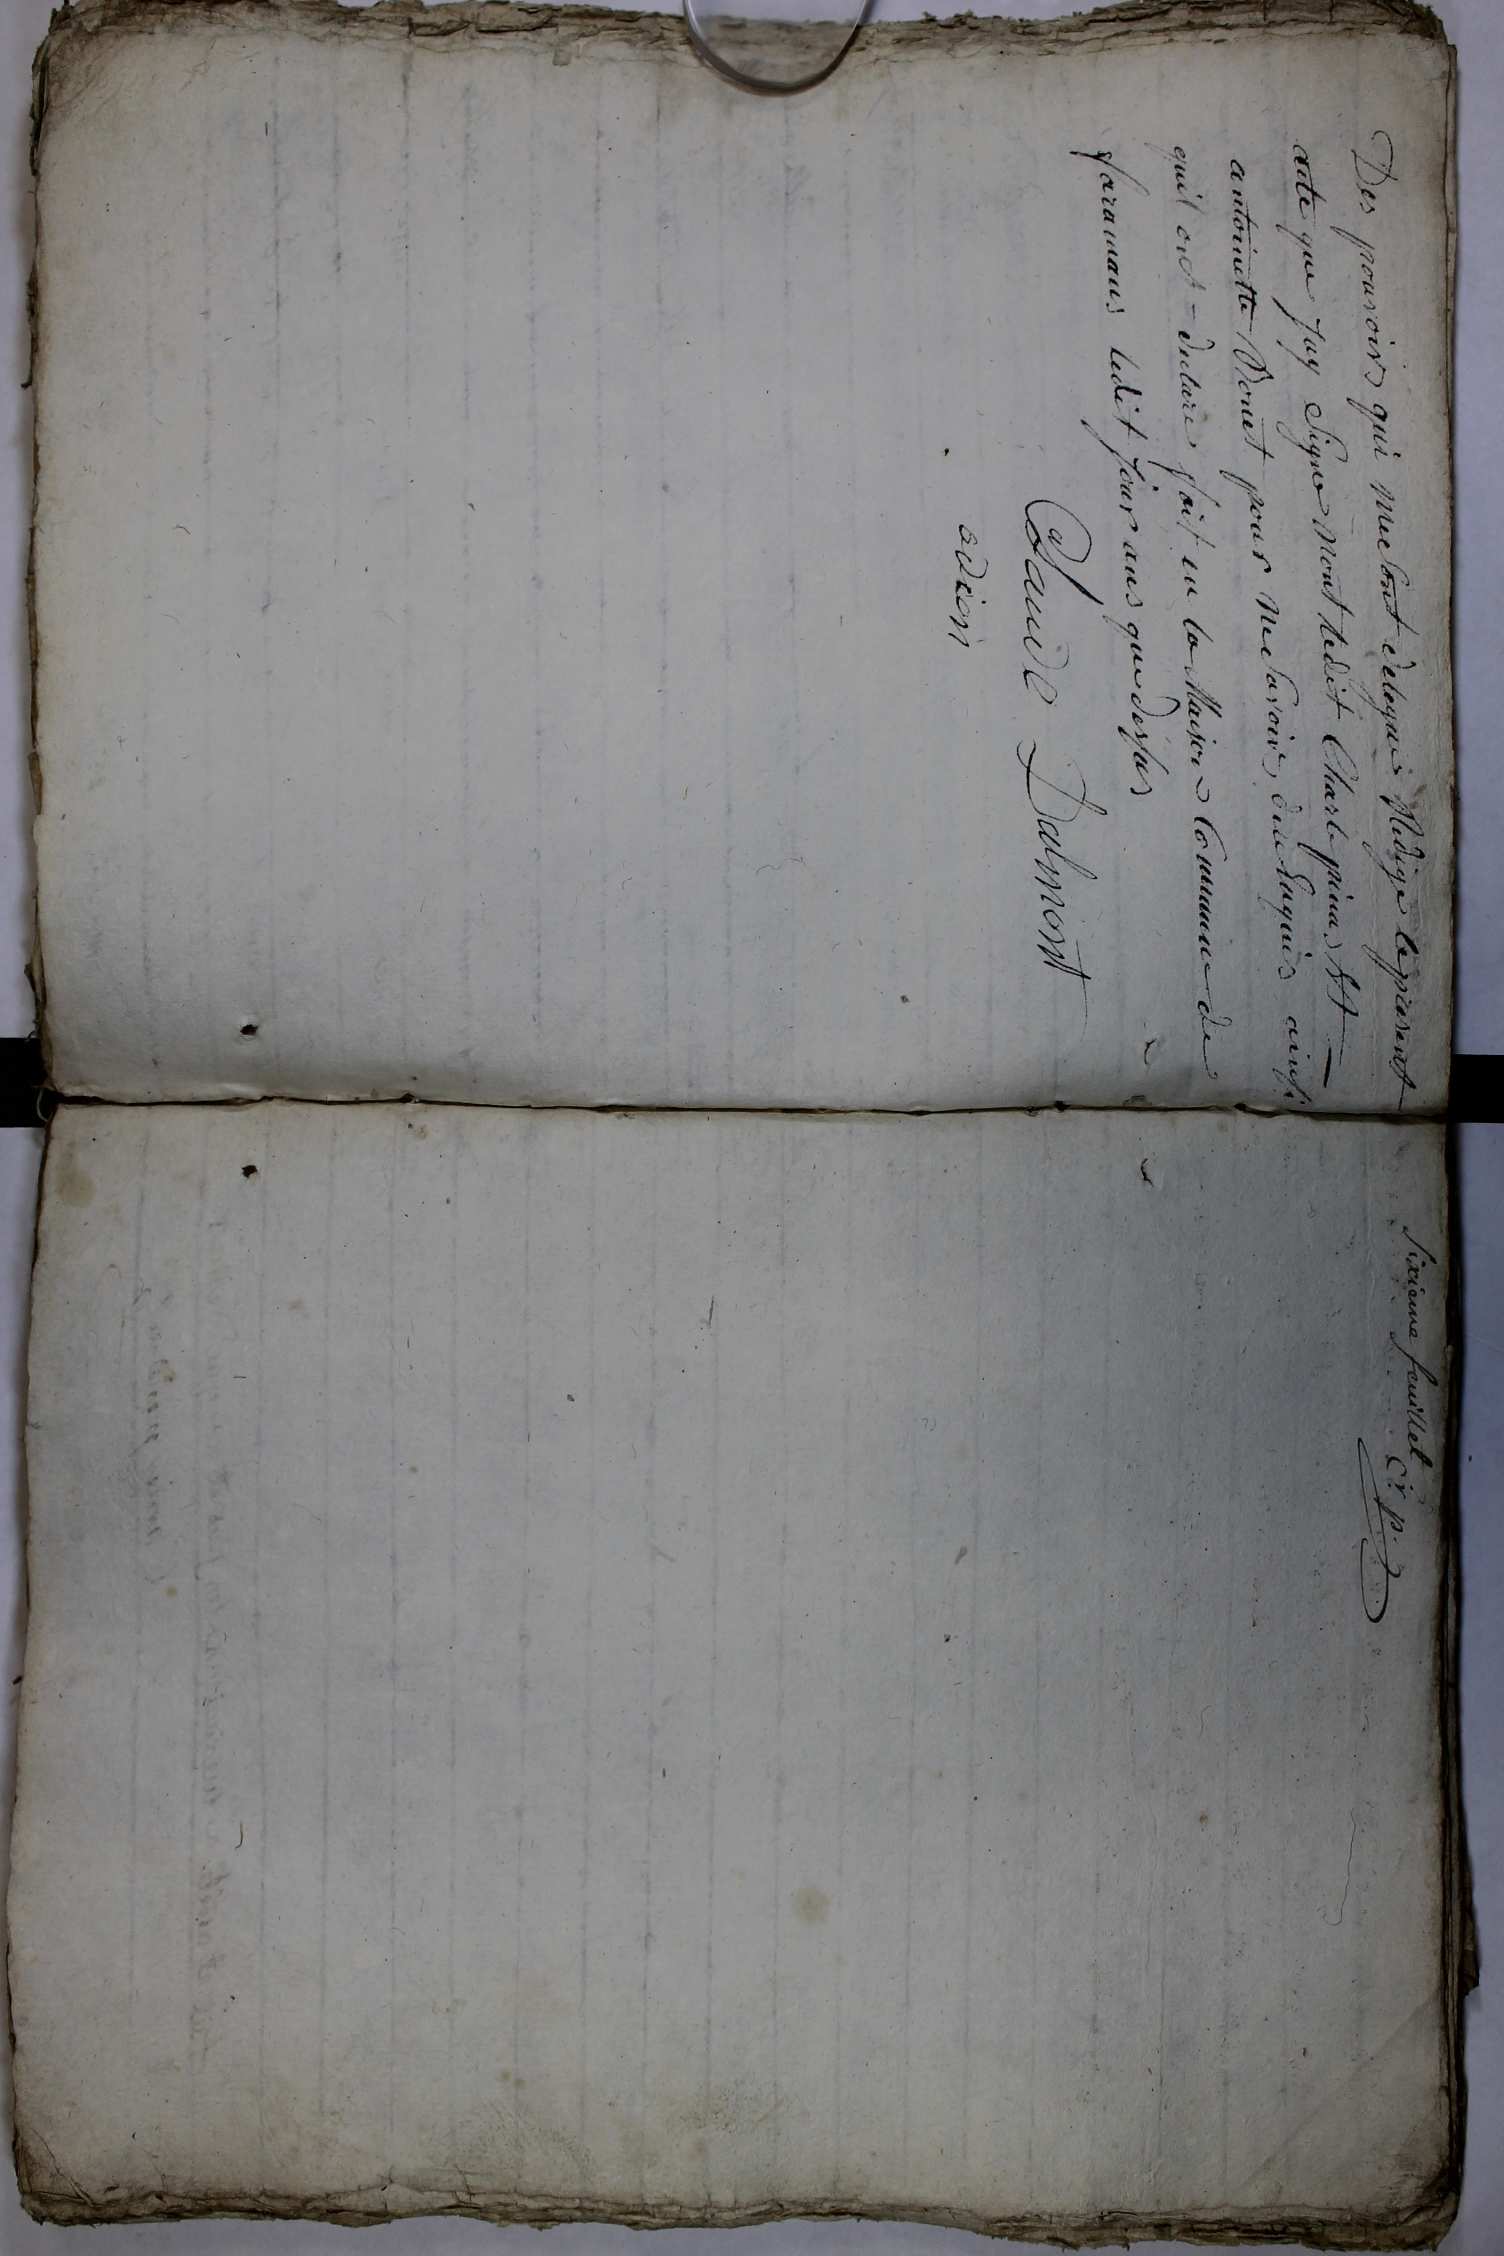 Des pouvoirs qui me sont delegués Redigé le présent
acte que jay Signe nont ledit Charle pinas &
antoinette Donet pour ne savoir, de ce Enquis ainsi
quil ont declaré fait en la Maison Commune de
faramans ledit jour ans que dessus
Claude Dalmont
adioin
Sixieme feuillet
C. p.